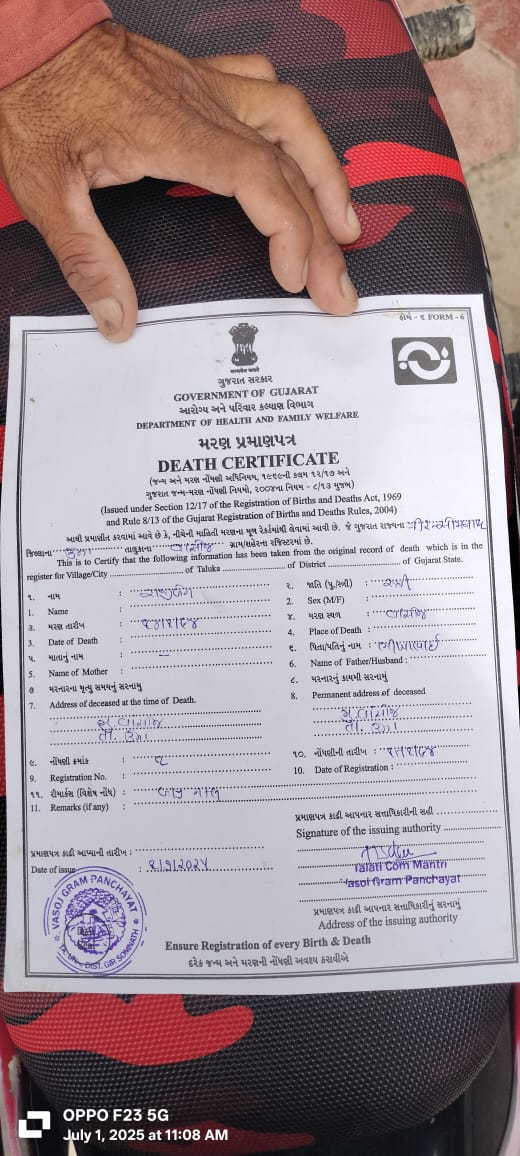 ફોર્મ - ૬ FORM - 6
सत्यमेव जयते
ગુજરાત સરકાર
GOVERNMENT OF GUJARAT
આરોગ્ય અને પરિવાર કલ્યાણ વિભાગ
DEPARTMENT OF HEALTH AND FAMILY WELFARE
મરણ પ્રમાણપત્ર
DEATH CERTIFICATE
(જન્મ અને મરણ નોંધણી અધિનિયમ, ૧૯૬૯ની કલમ ૧૨/૧૭ અને
ગુજરાત જન્મ-મરણ નોંધણી નિયમો, ૨૦૦૪ના નિયમ - ૮/૧૩ મુજબ)
(Issued under Section 12/17 of the Registration of Births and Deaths Act, 1969
and Rule 8/13 of the Gujarat Registration of Births and Deaths Rules, 2004)
આથી પ્રમાણિત કરવામાં આવે છે કે, નીચેની માહિતી મરણના મૂળ રેકર્ડમાંથી લેવામાં આવી છે. જે ગુજરાત રાજ્યના ગીર સોમનાથ
જિલ્લાના ઉના તાલુકાના વાસોજ ગ્રામ/શહેરના રજિસ્ટરમાં છે.
This is to Certify that the following information has been taken from the original record of death which is in the
register for Village/City of Taluka of District of Gujarat State.
૧. નામ :
૨. જાતિ (પુ./સ્ત્રી) : સ્ત્રી
1. Name :
2. Sex (M/F) :
૩. મરણ તારીખ :
૪. મરણ સ્થળ : વાસોજ
3. Date of Death :
4. Place of Death :
૫. માતાનું નામ : -
૬. પિતા/પતિનું નામ :
5. Name of Mother :
6. Name of Father/Husband :
૭ મરનારના મૃત્યુ સમયનું સરનામુ
૮. મરનારનું કાયમી સરનામું
7. Address of deceased at the time of Death.
8. Permanent address of deceased
મુ. વાસોજ
મુ. વાસોજ
તા. ઉના
તા. ઉના
૯. નોંધણી ક્રમાંક :
૧૦. નોંધણીની તારીખ :
9. Registration No. :
10. Date of Registration :
૧૧. રીમાર્કસ (વિશેષ નોંધ) :
11. Remarks (if any) :
પ્રમાણપત્ર કાઢી આપનાર સત્તાધિકારીની સહી
Signature of the issuing authority
પ્રમાણપત્ર કાઢી આપ્યાની તારીખ :
Date of issue :
Talati Com Mantri
Vasoj Gram Panchayat
પ્રમાણપત્ર કાઢી આપનાર સત્તાધિકારીનું સરનામું
Address of the issuing authority
VASOJ GRAM PANCHAYAT
TA. UNA, DIST. GIR SOMNATH
Ensure Registration of every Birth & Death
દરેક જન્મ અને મરણની નોંધણી અવશ્ય કરાવીએ
OPPO F23 5G
July 1, 2025 at 11:08 AM